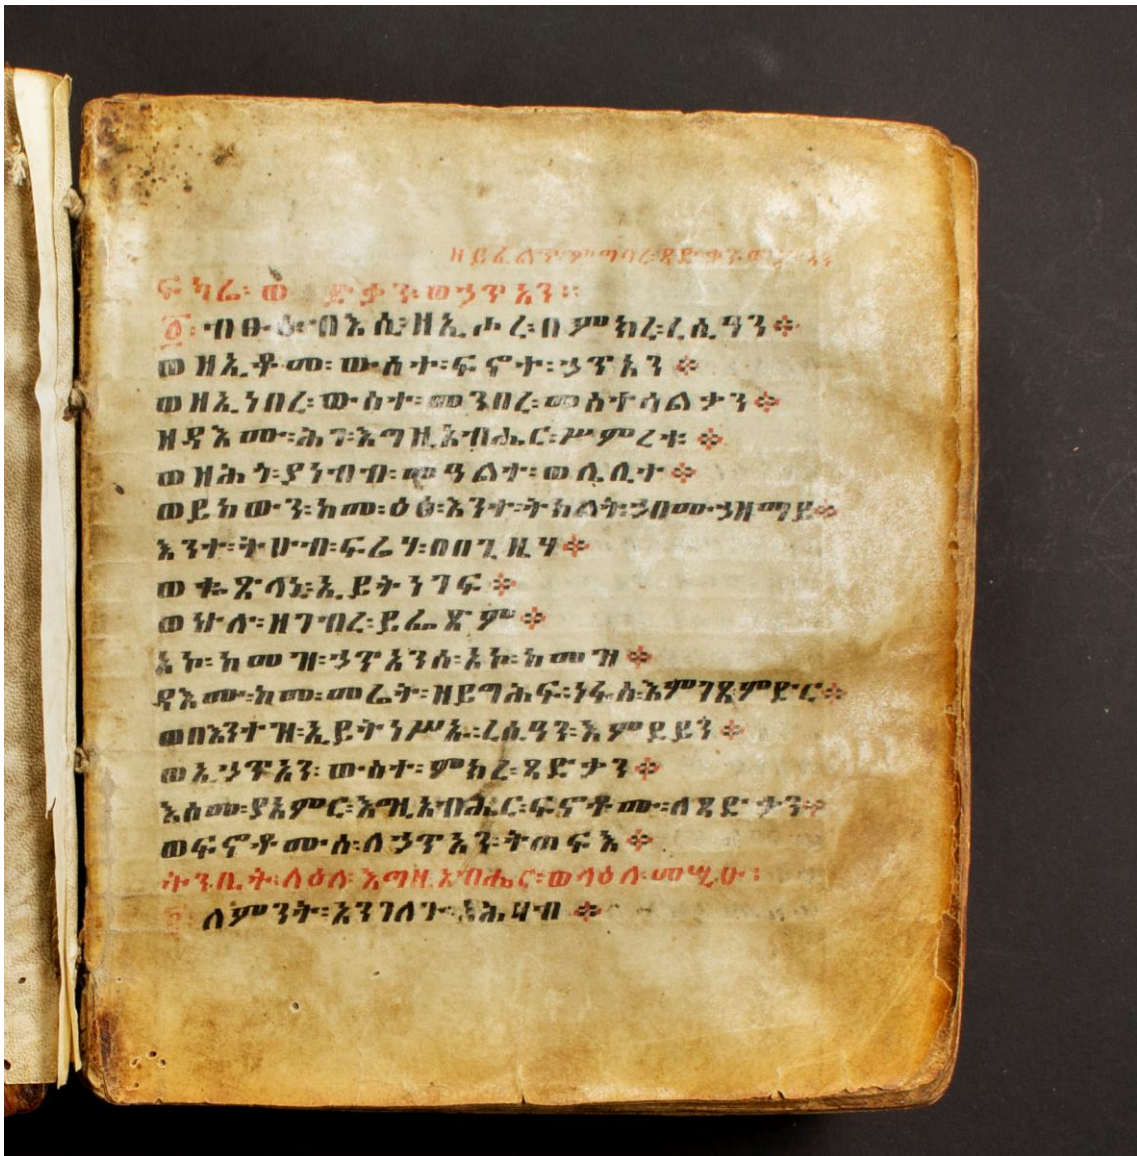 ፍካሬ፡ ወ ድቃን፡ ወኃጥአን።
፩፡ ብፁዕ፡ ብእሲ፡ ዘኢሖረ፡ በምክረ፡ ረሲዓን ፨
ወዘኢቆመ፡ ውስተ፡ ፍኖተ፡ ኃጥአን ፨
ወዘኢነበረ፡ ውስተ፡ መንበረ፡ መስተሳልቃን ፨
ዘዳእሙ፡ ሕገ፡ እግዚአብሔር፡ ሥምረቱ ፨
ወዘሕጎ፡ ያነብብ፡ መዓልተ፡ ወሌሊተ ፨
ወይከውን፡ ከመ፡ ዕፅ፡ እንተ፡ ትክልት፡ ኀበ፡ ሙኃዘ፡ ማይ ፨
እንተ፡ ትሁብ፡ ፍሬሃ፡ በበጊዜሃ ፨
ወቈጽላኒ፡ ኢይትነገፍ ፨
ወኵሎ፡ ዘገብረ፡ ይፌጽም ፨
አኮ፡ ከመዝ፡ ኃጥአንሰ፡ አኮ፡ ከመዝ ፨
ዳእሙ፡ ከመ፡ መሬት፡ ዘይግሕፍ፡ ነፋስ፡ እምገጸ፡ ምድር ፨
ወበእንተዝ፡ ኢይትነሥኡ፡ ረሲዓን፡ እምደይን ፨
ወኢኃጥአን፡ ውስተ፡ ምክረ፡ ጻድቃን ፨
እስመ፡ ያአምር፡ እግዚአብሔር፡ ፍኖቶሙ፡ ለጻድቃን ፨
ወፍኖቶሙሰ፡ ለኃጥአን፡ ትጠፍእ ፨
ትንቢት፡ ላዕለ፡ እግዚአብሔር፡ ወላዕለ፡ መሢሁ፡
ለምንት፡ አንገለጉ፡ አሕዛብ ፨